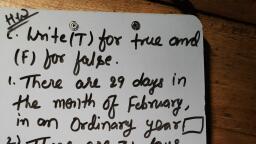 H.W
C. Write (T) for true and
(F) for false.
1. There are 29 days in
the month of February,
in an Ordinary year
2) There are 31 days